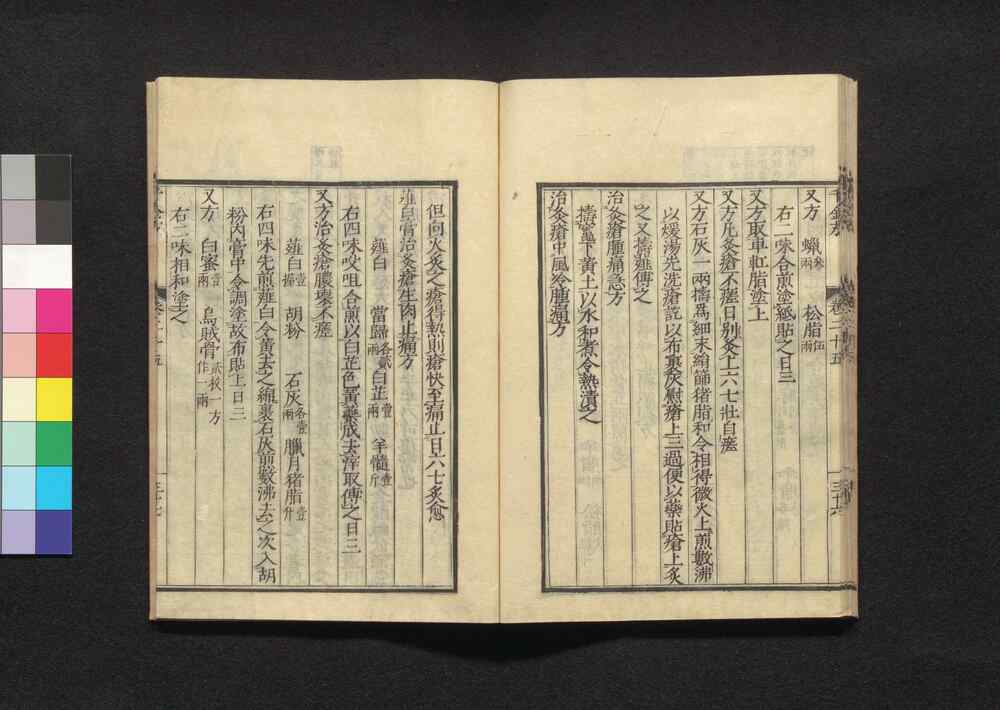 又方 蠟叁兩 松脂伍兩
右二味合煎塗紙貼之日三
又方取車釭脂塗上
又方凡灸瘡不瘥日別灸上六七壯自瘥
又方石灰一兩擣爲細末絹篩猪脂和令相得微火上煎數沸
以煖湯先洗瘡訖以布裹灰慰瘡上三過便以藥貼瘡上炙
之又擣薤傅之
治灸瘡腫痛急方
擣竈下黄土以水和煮令熱漬之
治灸瘡中風冷腫痛方
但向火炙之瘡得熱則瘡快至痛止日六七炙愈
薤白膏治灸瘡生肉止痛方
薤白 當歸各貳兩 白芷壹兩 羊髓壹斤
右四味㕮咀合煎以白芷色黄藥成去滓取傅之日三
又方治灸瘡膿壞不瘥
薤白壹握 胡粉 石灰各壹兩 臘月猪脂壹升
右四味先煎薤白令黄去之綿裹石灰煎數沸去之次入胡
粉内膏中令調塗故布貼上日三
又方 白蜜壹兩 烏賊骨貳枚一方作一兩
右二味相和塗之
千金方
卷二十五
三十六